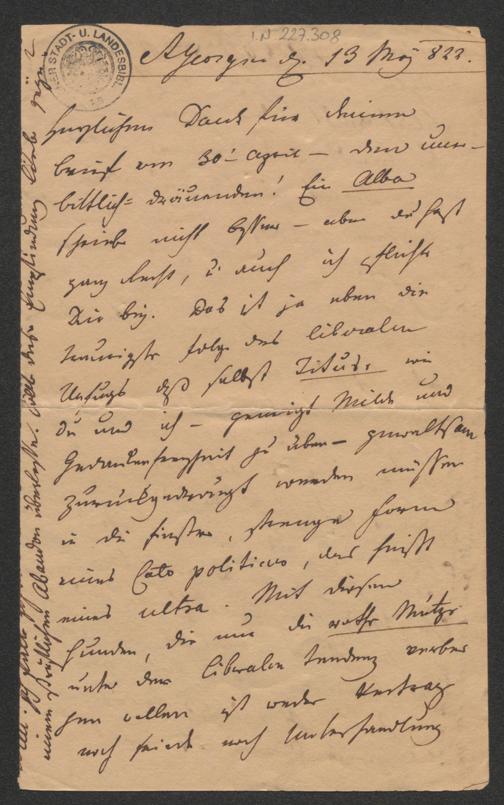 I.N 227.308
STADT- U. LANDESBIBL.
13 May 822.
Herzlichen Dank für deinen
brief vom 30t april – den uner-
bittlich-dräuenden! Ein Alba
schriebe nicht besser – aber du hast
ganz Recht, u. auch ich pflichte
Dir bey. Das ist ja eben die
traurigste folge des liberalen
Unfugs daß selbst Titus, wie
du und ich – geneigt Milde und
Gedankenfreyheit zu üben – gewaltsam
zurückgedrängt werden müssen
in die finstre, strenge form
eines Cato politicus, das heißt
eines ultra. Mit diesen
hunden, die nur die rothe Mütze
unter der liberalen tendenz verber
gen wollen ist weder Vertrag
noch friede noch Unterhandlung